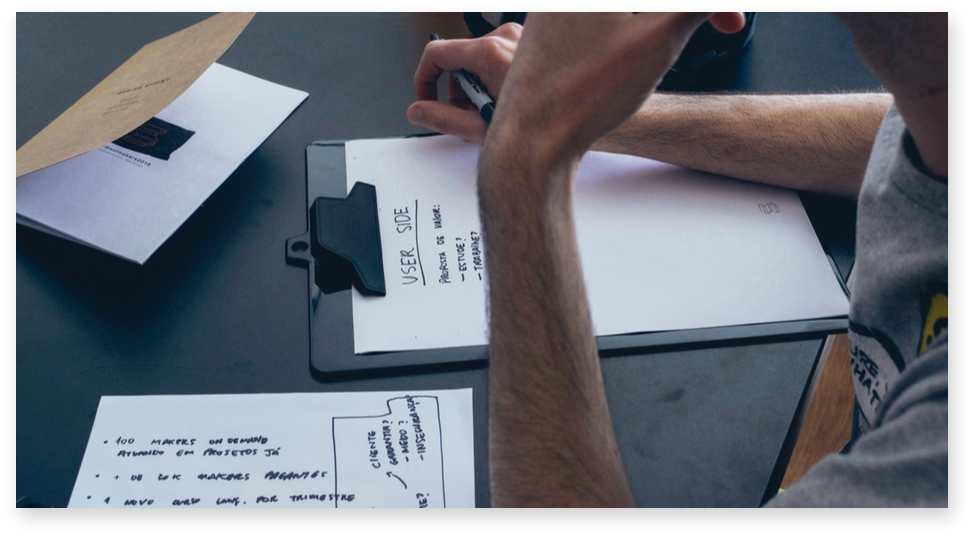 USER SIDE
PROPOSTA DE VALOR:
- ESTUDE?
- TRABALHE?
• 100 MAKERS ON DEMAND
ATUANDO EM PROJETOS JÁ
• + DE 20K MAKERS PAGANTES
• 1 NOVO CURSO LANÇ. POR TRIMESTRE
CLIENTE
GARANTIA?
- MEDO?
- INSEGURANÇA